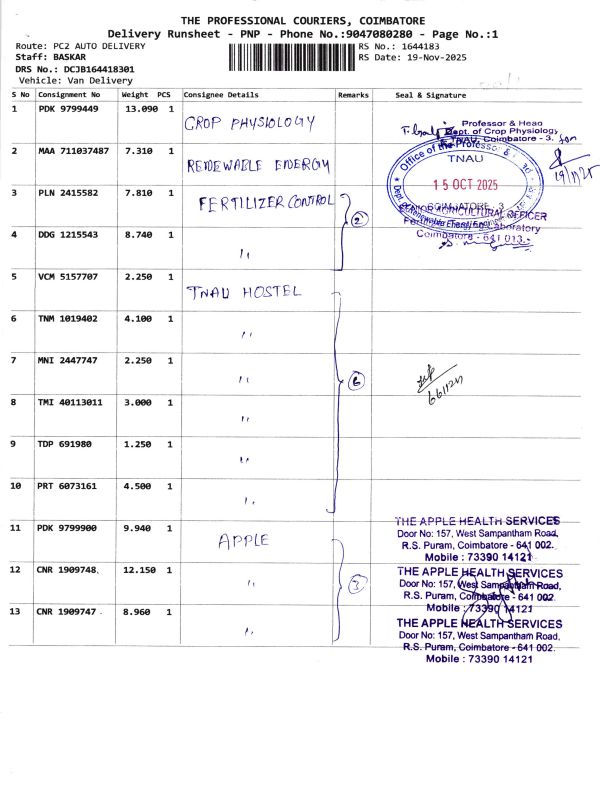 THE PROFESSIONAL COURIERS, COIMBATORE
Delivery Runsheet - PNP - Phone No.:9047080280 - Page No.:1
Route: PC2 AUTO DELIVERY
RS No.: 1644183
Staff: BASKAR
RS Date: 19-Nov-2025
DRS No.: DCJB164418301
Vehicle: Van Delivery
S No Consignment No Weight PCS Consignee Details Remarks Seal & Signature
1 PDK 9799449 13.090 1 CROP PHYSIOLOGY
Professor & Head
Dept. of Crop Physiology
TNAU, Coimbatore - 3. for
2 MAA 711037487 7.310 1 RENEWABLE ENERGY
Office of the Professor &
TNAU
15 OCT 2025
COIMBATORE - 3
19/11/25
3 PLN 2415582 7.810 1 FERTILIZER CONTROL 2
AGRICULTURAL OFFICER
Laboratory
Coimbatore - 641 013.
4 DDG 1215543 8.740 1 ,,
5 VCM 5157707 2.250 1 TNAU HOSTEL
6 TNM 1019402 4.100 1 ,,
7 MNI 2447747 2.250 1 ,, 6
8 TMI 40113011 3.000 1 ,,
9 TDP 691980 1.250 1 ,,
10 PRT 6073161 4.500 1 ,,
11 PDK 9799900 9.940 1 APPLE
THE APPLE HEALTH SERVICES
Door No: 157, West Sampantham Road,
R.S. Puram, Coimbatore - 641 002.
Mobile : 73390 14121
12 CNR 1909748 12.150 1 ,, 3
THE APPLE HEALTH SERVICES
Door No: 157, West Sampantham Road,
R.S. Puram, Coimbatore - 641 002.
Mobile : 73390 14121
13 CNR 1909747 8.960 1 ,,
THE APPLE HEALTH SERVICES
Door No: 157, West Sampantham Road,
R.S. Puram, Coimbatore - 641 002.
Mobile : 73390 14121